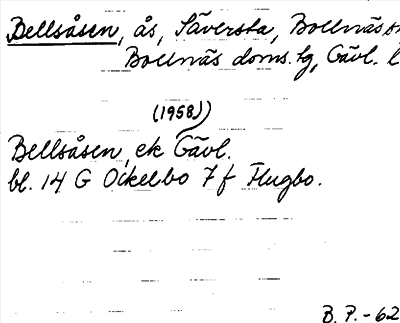 Bellsåsen, ås, Säversta, Bollnäs
Bollnäs doms. tg, Gävl. l
(1958))
Bellsåsen, ek Gävl.
bl. 14 G Ockelbo 7 f Flugbo.
B. P. -62